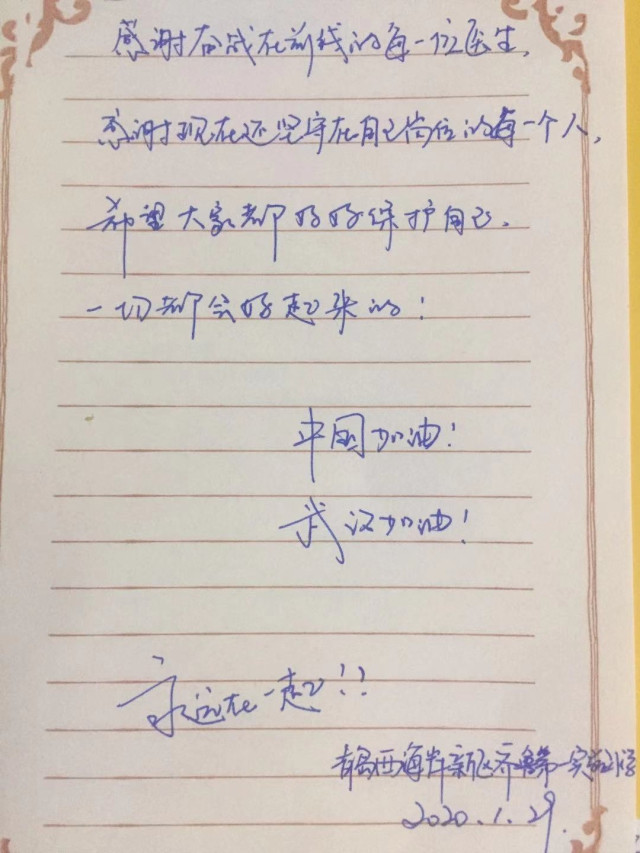 感谢奋战在前线的每一位医生，
感谢现在还坚守在自己岗位的每一个人，
希望大家都好好保护自己。
一切都会好起来的！
中国加油！
武汉加油！
永远在一起！！
青岛西海岸新区齐鲁第一实验小学
2020.1.29.